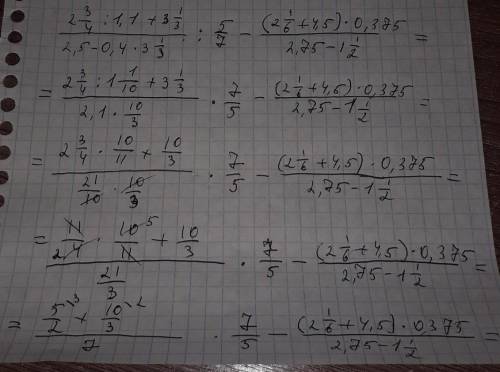 (2 3/4 : 1,1 + 3 1/3) / (2,5 - 0,4 · 3 1/3) : 5/7 - ((2 1/6 + 4,5) · 0,375) / (2,75 - 1 1/2) =
= (2 3/4 : 1 1/10 + 3 1/3) / (2,1 · 10/3) · 7/5 - ((2 1/6 + 4,5) · 0,375) / (2,75 - 1 1/2) =
= (2 3/4 · 10/11 + 10/3) / (21/10 · 10/3) · 7/5 - ((2 1/6 + 4,5) · 0,375) / (2,75 - 1 1/2) =
= (11/4 2 · 10/11 5 + 10/3) / (21/3) · 7/5 - ((2 1/6 + 4,5) · 0,375) / (2,75 - 1 1/2) =
= (5/2 \3 + 10/3 \2) / 7 · 7/5 - ((2 1/6 + 4,5) · 0,375) / (2,75 - 1 1/2) =